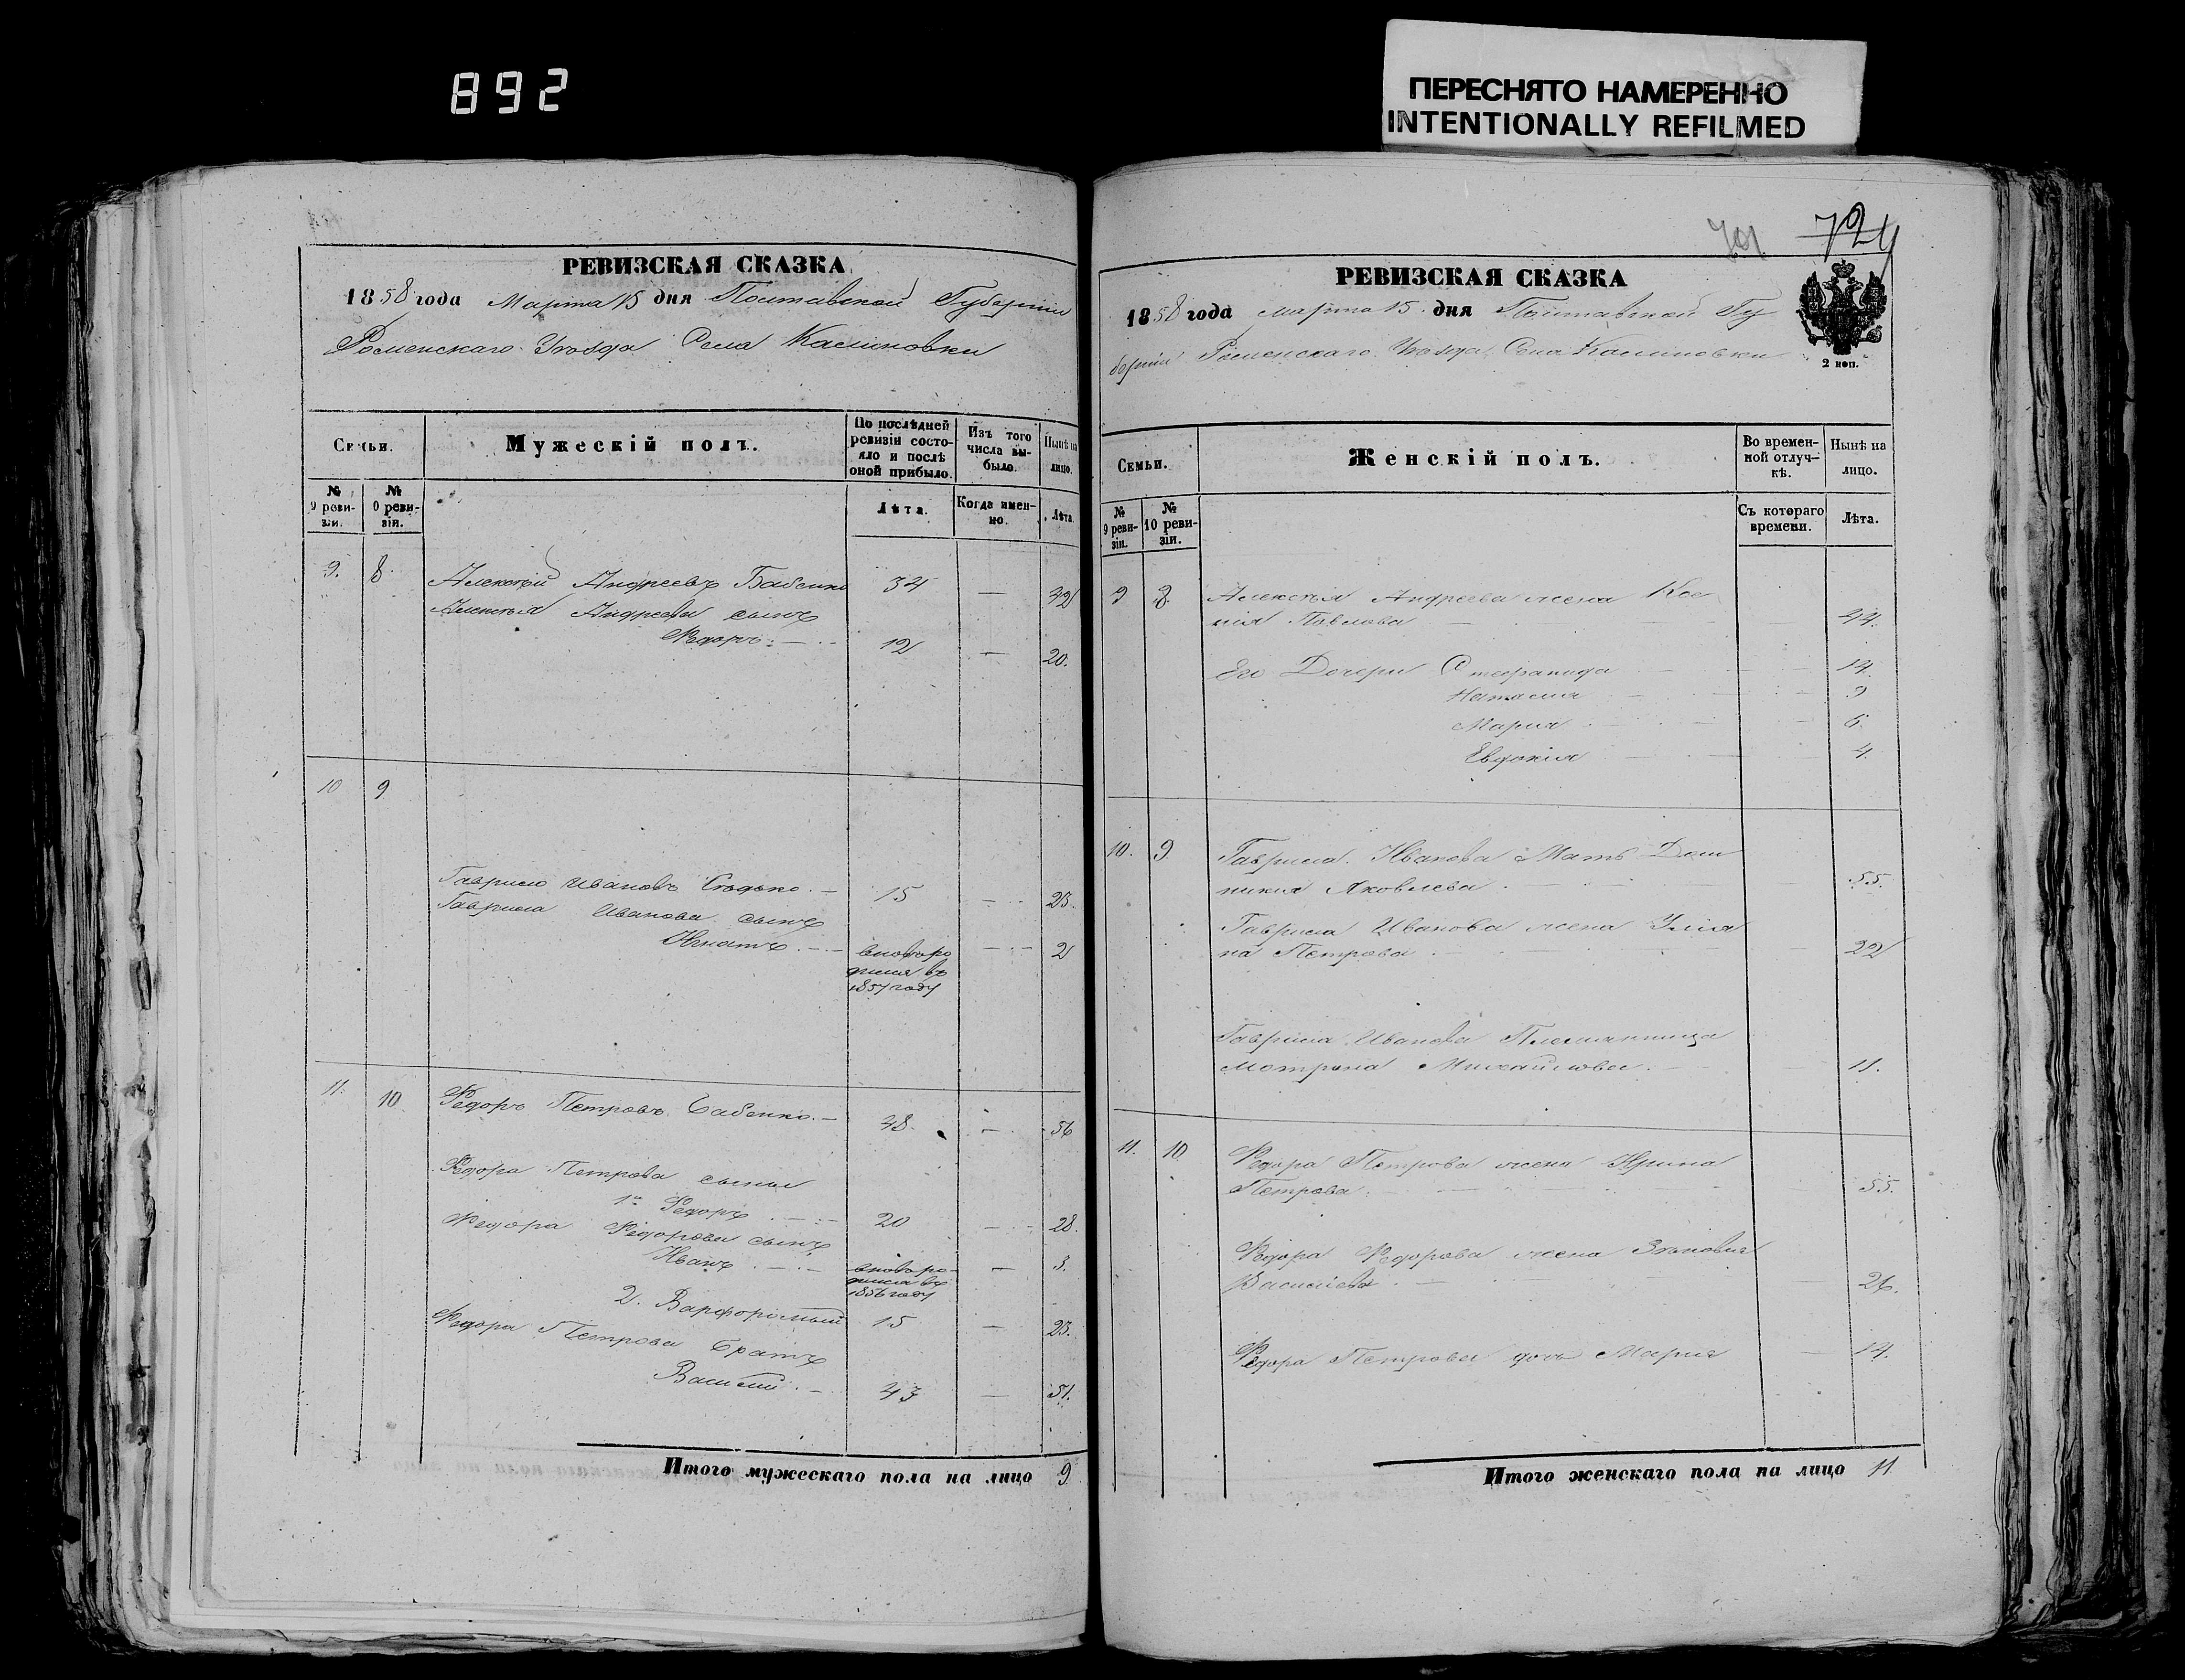 892
ПЕРЕСНЯТО НАМЕРЕННО
INTENTIONALLY REFILMED
РЕВИЗСКАЯ СКАЗКА
1858 года Марта 15 дня Полтавской Губерніи
Роменскаго Уѣзда Села Калиновки
Семьи.
Мужескій полъ.
По послѣдней ревизіи состояло и послѣ оной прибыло.
Изъ того числа выбыло.
Нынѣ на лицо.
№ 9 ревизіи.
№ 0 ревизіи.
Лѣта.
Когда именно.
Лѣта.
9. 8. Алексѣй Андреевъ Бабенко 34 — 42
Алексѣя Андреева сынъ
Федоръ 12 — 20.
10 9
Гаврило Ивановъ 15 — 23.
Гаврила Иванова сынъ
Игнатъ вновь ро — 2
дился въ
1857 году
11. 10 Федоръ Петровъ Бабенко. — 48. — 56
Федора Петрова сыны
1й Федоръ 20 — 28.
Федора Федорова сынъ
Иванъ вновь ро- — 3.
дился въ
1856 году
2. Варфоломей 15 — 23.
Федора Петрова братъ
Василий 43 — 51.
Итого мужескаго пола на лицо 9
701 724
РЕВИЗСКАЯ СКАЗКА
1858 года марта 15. дня Полтавской Гу
берніи Роменскаго Уѣзда Села Калиновки
2 коп.
Семьи.
Женскій полъ.
Во временной отлучкѣ.
Нынѣ на лицо.
№ 9 ревизіи.
№ 10 ревизіи.
Съ котораго времени.
Лѣта.
9 8. Алексѣя Андреева жена Ксе
нія Павлова 44.
Его Дочери Степанида 14.
Наталия 9
Мария 6.
Евдокия 4.
10. 9 Гаврила Иванова Мать Дом
никия Яковлева 55.
Гаврила Иванова жена Улия
на Петрова 22
Гаврила Иванова Племянница
Мотрона Михайлова. 11.
11. 10 Федора Петрова жена Ирина
Петрова 55.
Федора Федорова жена Зѣновия
Васильева 26.
Федора Петрова дочь Мария 14.
Итого женскаго пола на лицо 11